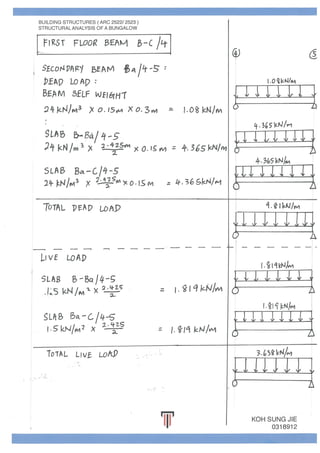 BUILDING STRUCTURES ( ARC 2522/ 2523 )
STRUCTURAL ANALYSIS OF A BUNGALOW
FIRST FLOOR BEAM B-C/4
④ ⑤
SECONDARY BEAM Ba/4-5 :
DEAD LOAD :
BEAM SELF WEIGHT
24 kN/m³ X 0.15m X 0.3 m = 1.08 kN/m
1.08 kN/m
SLAB B-Ba/4-5
24 kN/m³ X 2.425m/2 X 0.15 m = 4.365 kN/m
4.365 kN/m
SLAB Ba-C/4-5
24 kN/m³ X 2.425m/2 X 0.15m = 4.365kN/m
4.365 kN/m
TOTAL DEAD LOAD
9.81kN/m
LIVE LOAD
SLAB B-Ba/4-5
1.5 kN/m² X 2.425/2 = 1.819 kN/m
1.819kN/m
SLAB Ba-C/4-5
1.5 kN/m² X 2.425/2 = 1.819 kN/m
1.819kN/m
TOTAL LIVE LOAD
3.638 kN/m
KOH SUNG JIE
0318912